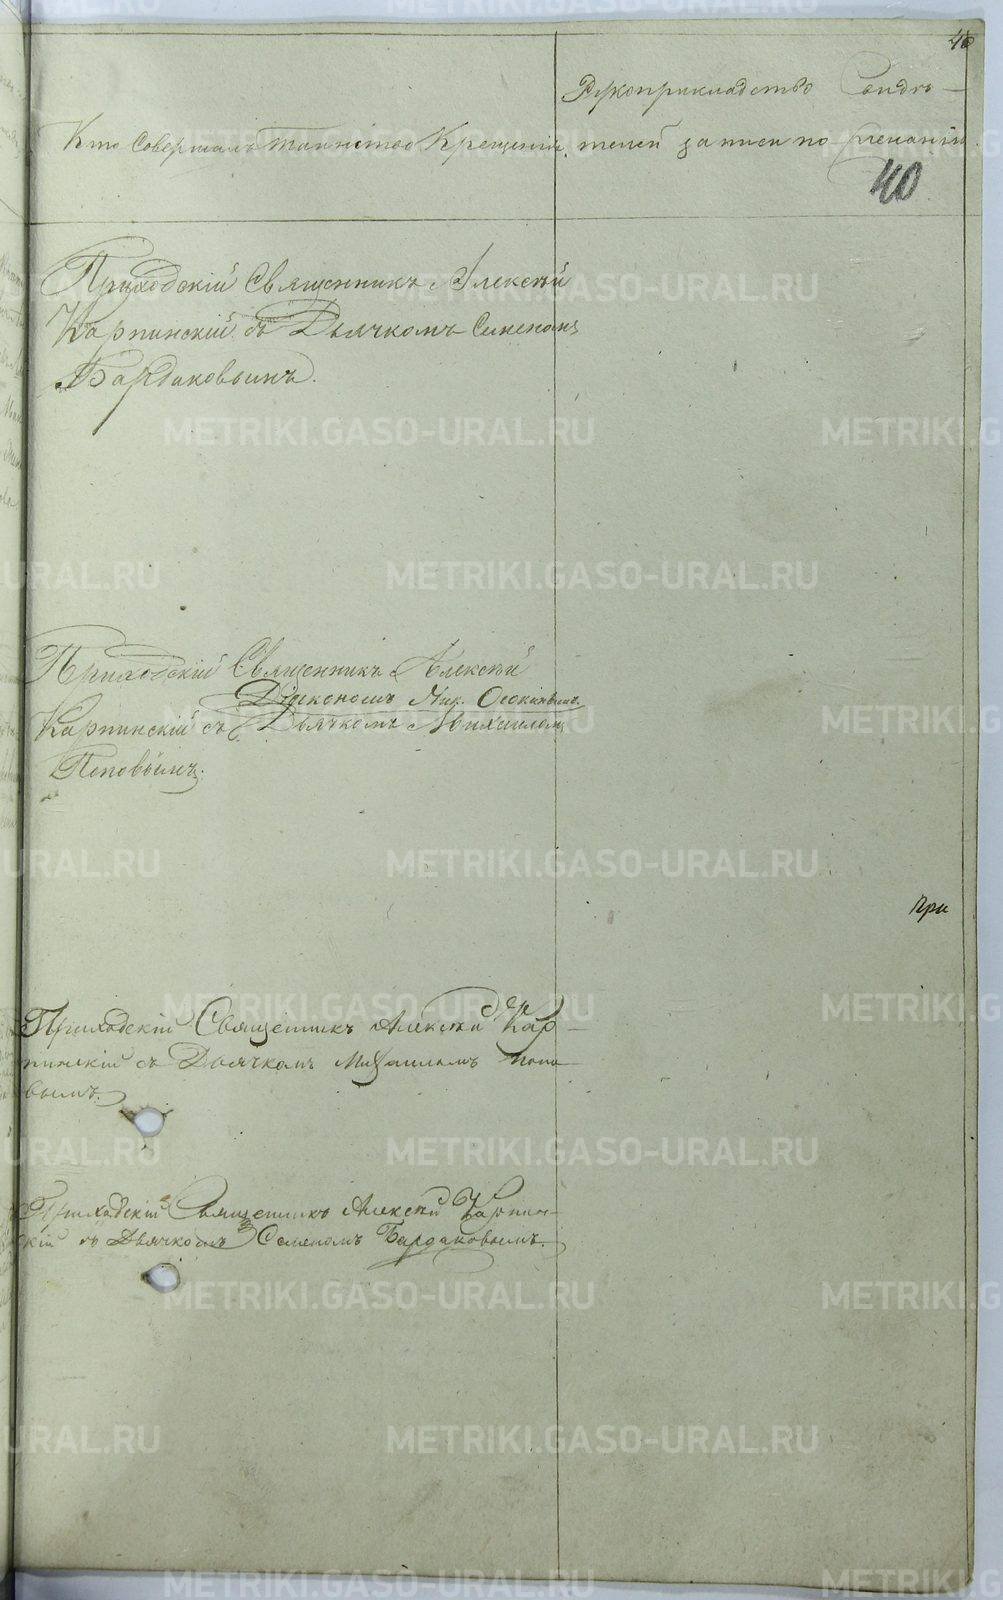 40
Рукоприкладство Свидѣ-
Кто совершалъ таинство Крещенія. телей записи по желанію
40
Приходскій Священникъ Алексѣй
Карпинскій съ Дьячкомъ Семеномъ
Бардаковымъ.
Приходскій Священникъ Алексѣй
Діакономъ Ник. Осокинымъ.
Карпинскій съ Дьячкомъ Михаиломъ
Поповымъ.
При
Приходскій Священникъ Алексѣй Кар-
пинскій съ Дьячкомъ Михаиломъ Попо-
вымъ.
Приходскій Священникъ Алексѣй Карпин-
скій съ Дьячкомъ Семеномъ Бардаковымъ.
METRIKI.GASO-URAL.RU